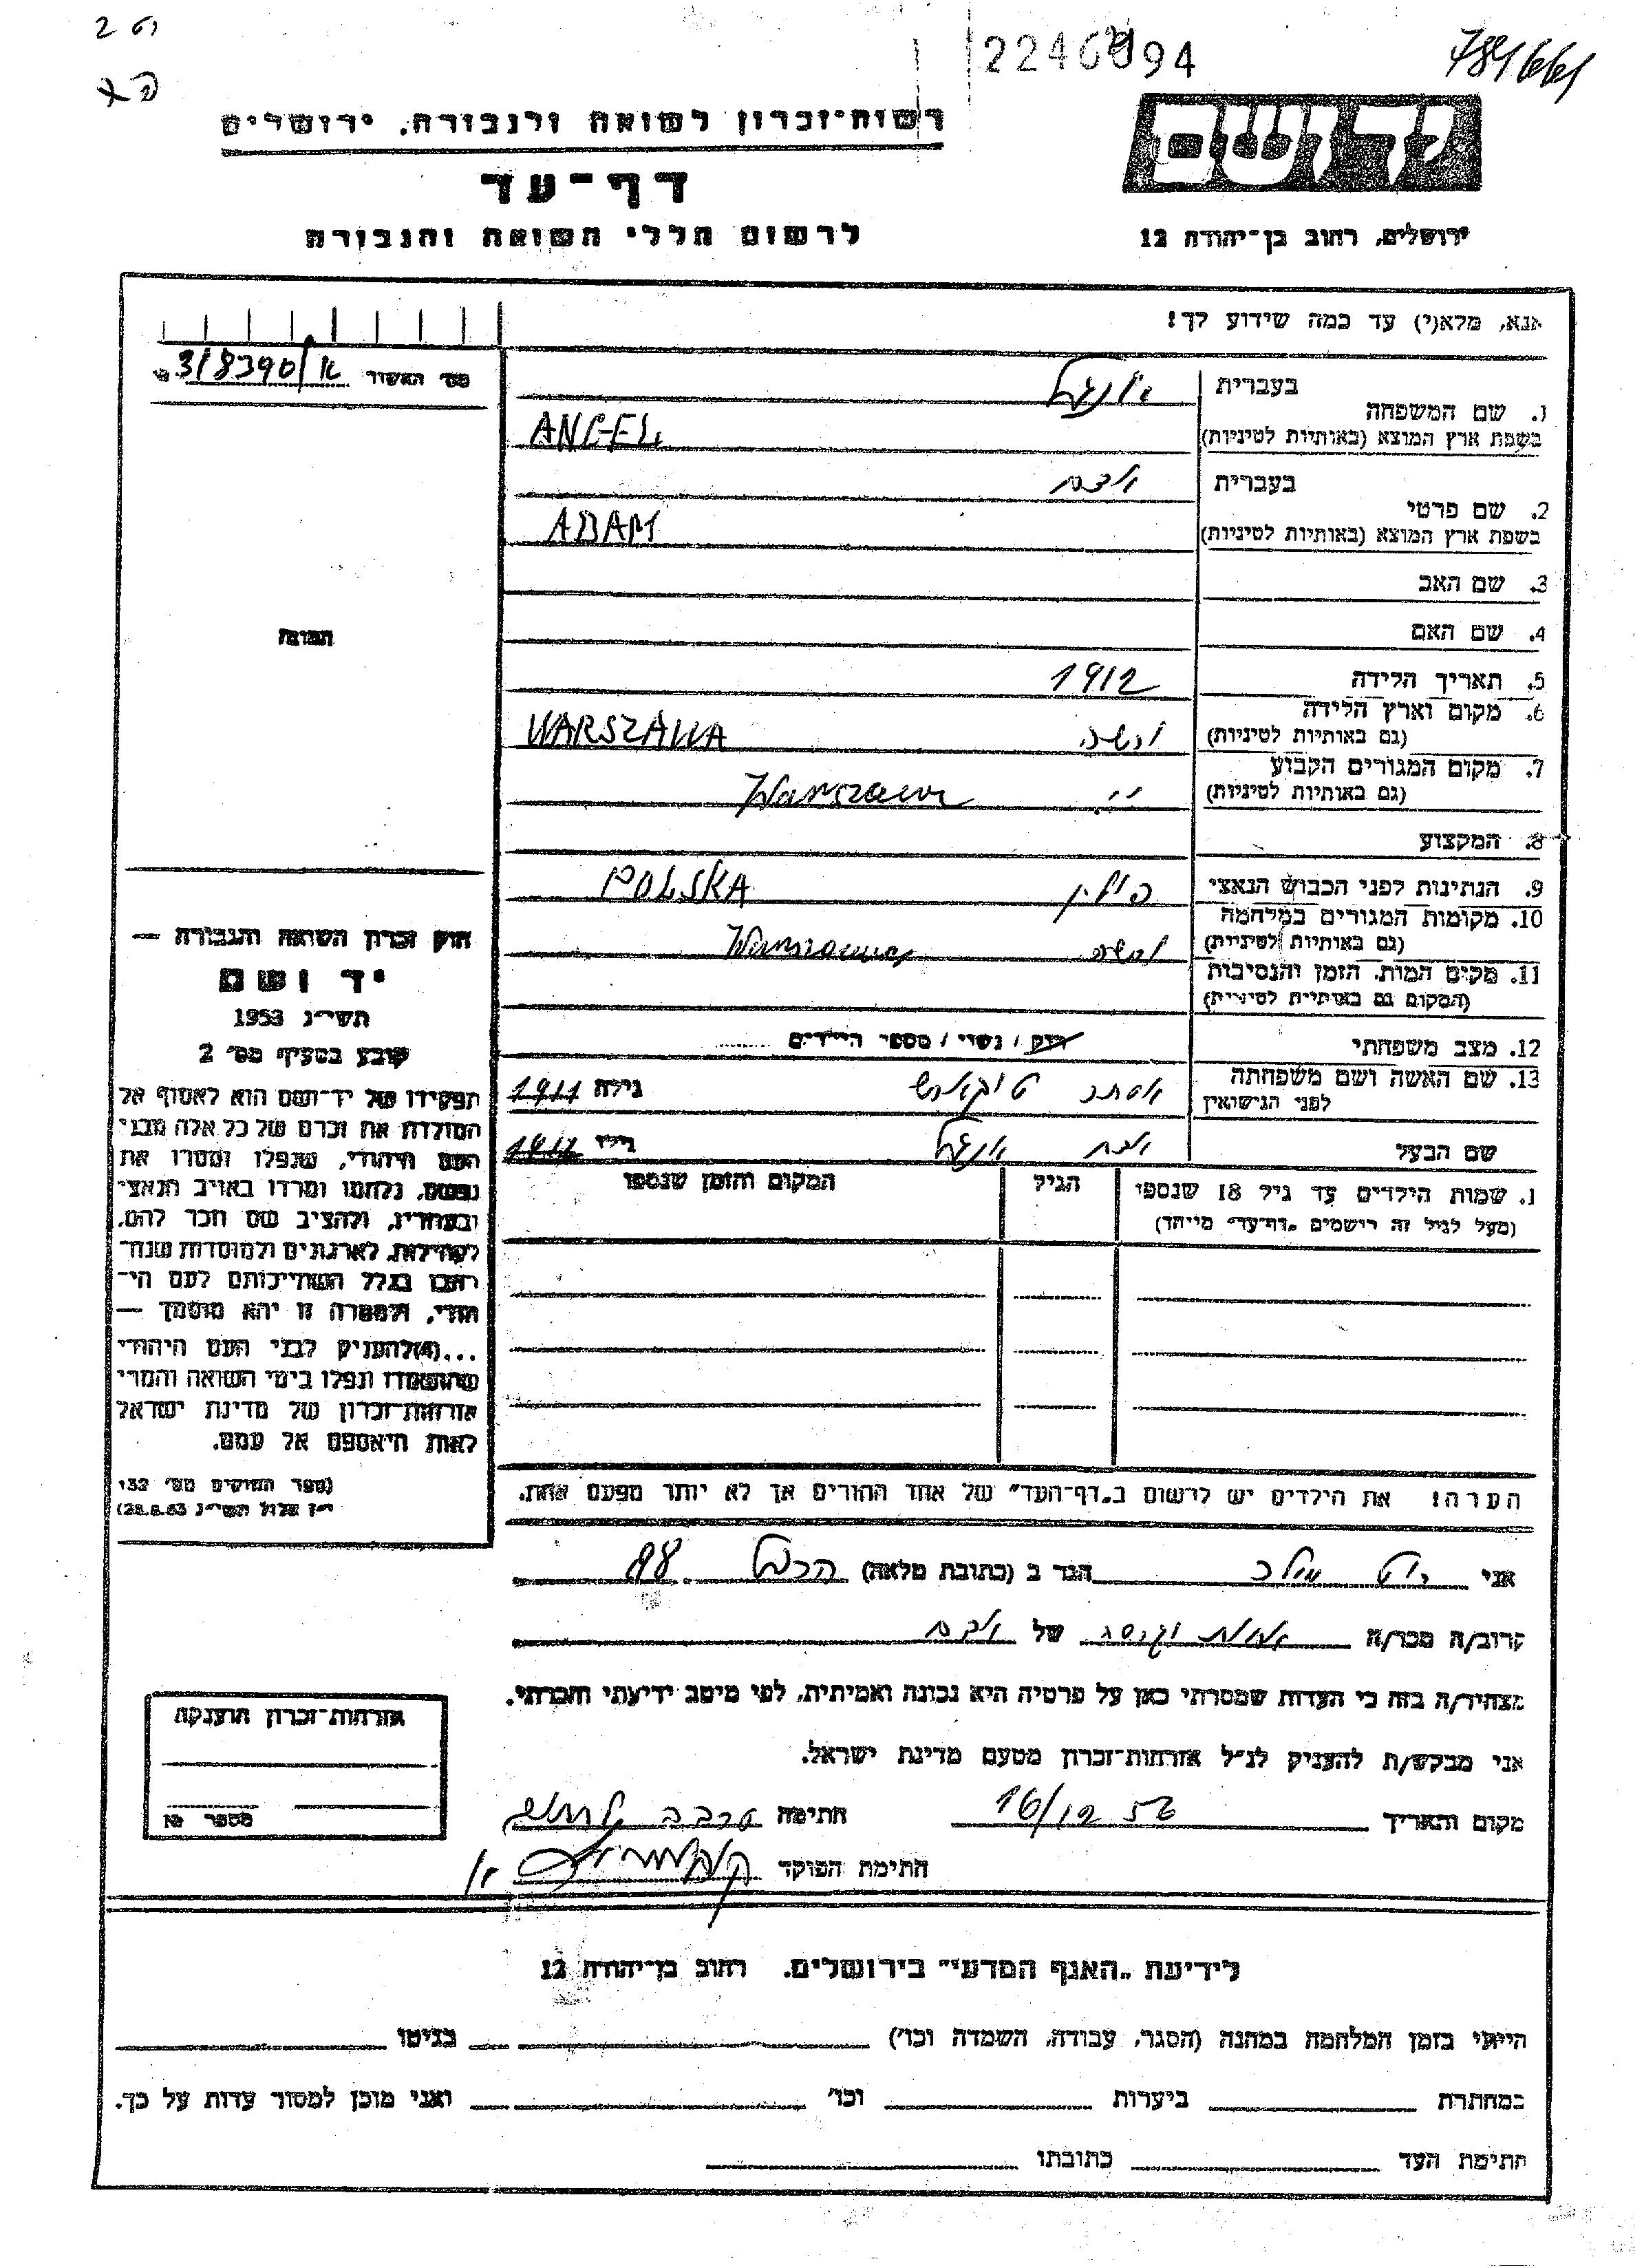 2246094
789661
רשות־זכרון לשואה ולגבורה, ירושלים
דף־עד
לרשום חללי השואה והגבורה
יד ושם
ירושלים, רחוב בן־יהודה 12
אנא, מלא(י) עד כמה שידוע לך!
מס' האשור 318390/א
1. שם המשפחה
בעברית אנגל
בשפת ארץ המוצא (באותיות לטיניות) ANGEL
2. שם פרטי
בעברית אדם
בשפת ארץ המוצא (באותיות לטיניות) ADAM
3. שם האב
4. שם האם
תמונה
5. תאריך הלידה 1912
6. מקום וארץ הלידה
(גם באותיות לטיניות) ורשה WARSZAWA
7. מקום המגורים הקבוע
(גם באותיות לטיניות) " Warszawa
8. המקצוע
9. הנתינות לפני הכבוש הנאצי פולין POLSKA
10. מקומות המגורים במלחמה
(גם באותיות לטיניות) ורשה Warszawa
11. מקום המות, הזמן והנסיבות
(המקום גם באותיות לטיניות)
12. מצב משפחתי רוק / נשוי / מספר הילדים
13. שם האשה ושם משפחתה
לפני הנישואין אסתר גילה 1911
שם הבעל אדם אנגל גילו 1912
1. שמות הילדים עד גיל 18 שנספו
(מעל לגיל זה רושמים „דף־עד" מיוחד)
הגיל
המקום והזמן שנספו
חוק זכרון השואה והגבורה —
יד ושם
תשי"ג 1953
קובע בסעיף מס' 2
תפקידו של יד־ושם הוא לאסוף אל
המולדת את זכרם של כל אלה מבני
העם היהודי, שנפלו ומסרו את
נפשם, נלחמו ומרדו באויב הנאצי
ובעוזריו, ולהציב שם וזכר להם,
לקהילות, לארגונים ולמוסדות שנח־
רבו בגלל השתייכותם לעם הי־
הודי, ולמטרה זו יהא מוסמך —
...(4) להעניק לבני העם היהודי
שהושמדו ונפלו בימי השואה והמרי
אזרחות־זכרון של מדינת ישראל
לאות היאספם אל עמם.
(ספר החוקים מס' 132
י"ז אלול תשי"ג 28.8.53)
הערה! את הילדים יש לרשום ב„דף־העד" של אחד ההורים אך לא יותר מפעם אחת.
אני הגר ב (כתובת מלאה) הכרמל
קרוב/ה מכר/ה של אדם
מצהיר/ה בזה כי העדות שמסרתי כאן על פרטיה היא נכונה ואמיתית, לפי מיטב ידיעתי והכרתי.
אני מבקש/ת להעניק לנ"ל אזרחות־זכרון מטעם מדינת ישראל.
מקום והתאריך 16/12 56 חתימה
חתימת הפוקד
אזרחות־זכרון הוענקה
מספר №
לידיעת „האגף המדעי" בירושלים. רחוב בן־יהודה 12
הייתי בזמן המלחמה במחנה (הסגר, עבודה, השמדה וכו') בגיטו
במחתרת ביערות וכו' ואני מוכן למסור עדות על כך.
חתימת העד כתובתו